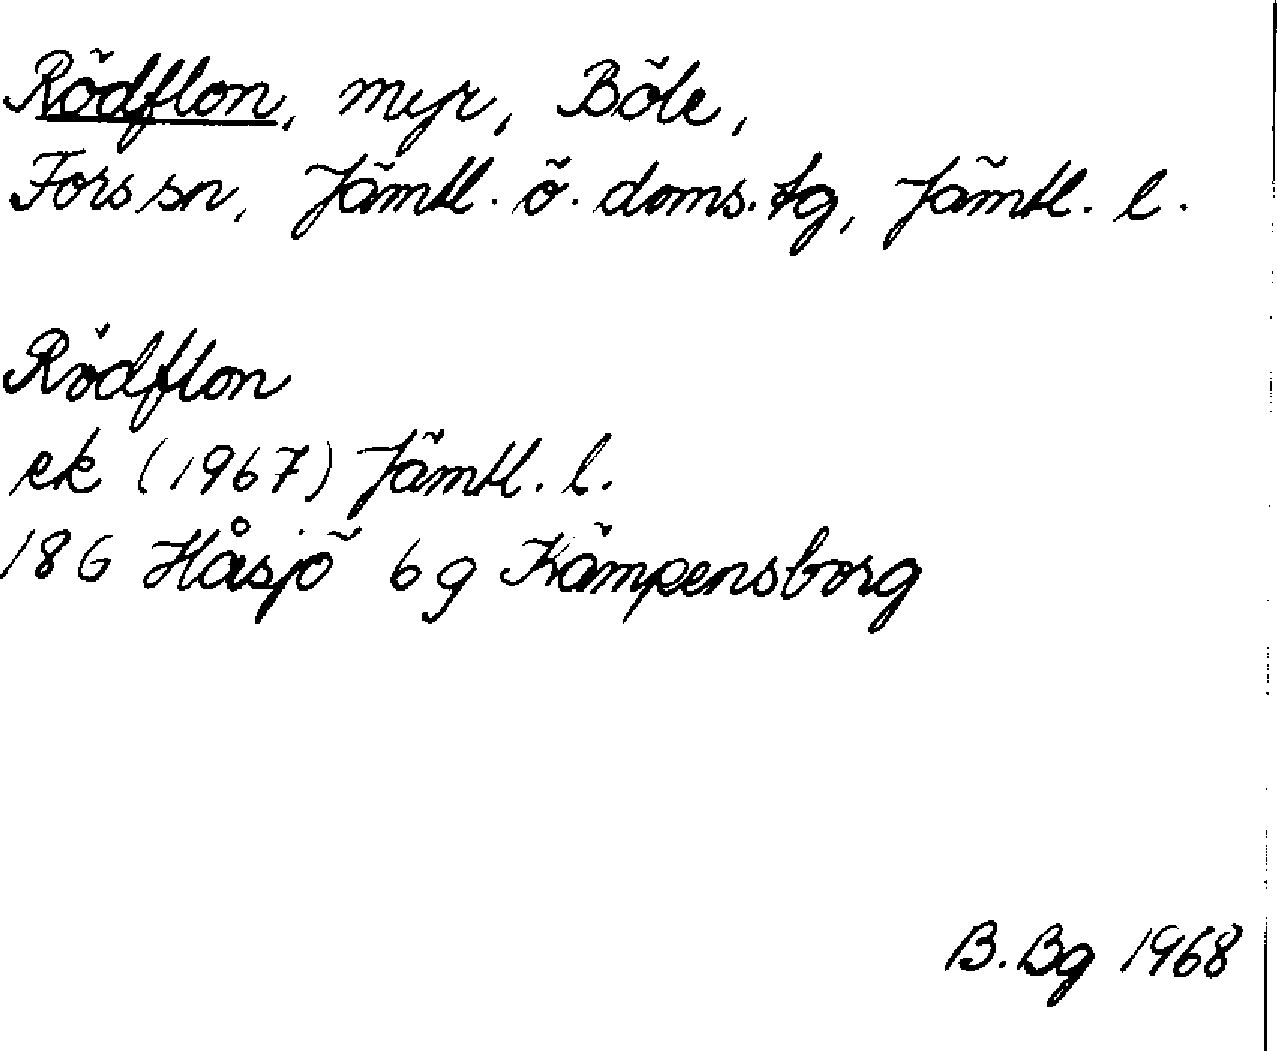 Rödflon, myr, Böle,
Fors sn, Jämtl. ö. doms. tg, Jämtl. l.
Rödflon
ek (1967) Jämtl. l.
18G Håsjö 6g Kämpensborg
B. Bg 1968